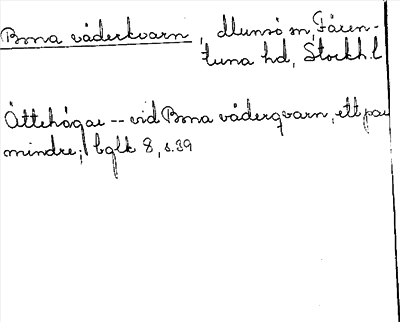 Bona väderkvarn, Munsö sn, Fären-
tuna hd, Stockh.l
Åttehågar -- vid Bona väderqvarn, ett par
mindre; bglk 8, s.39